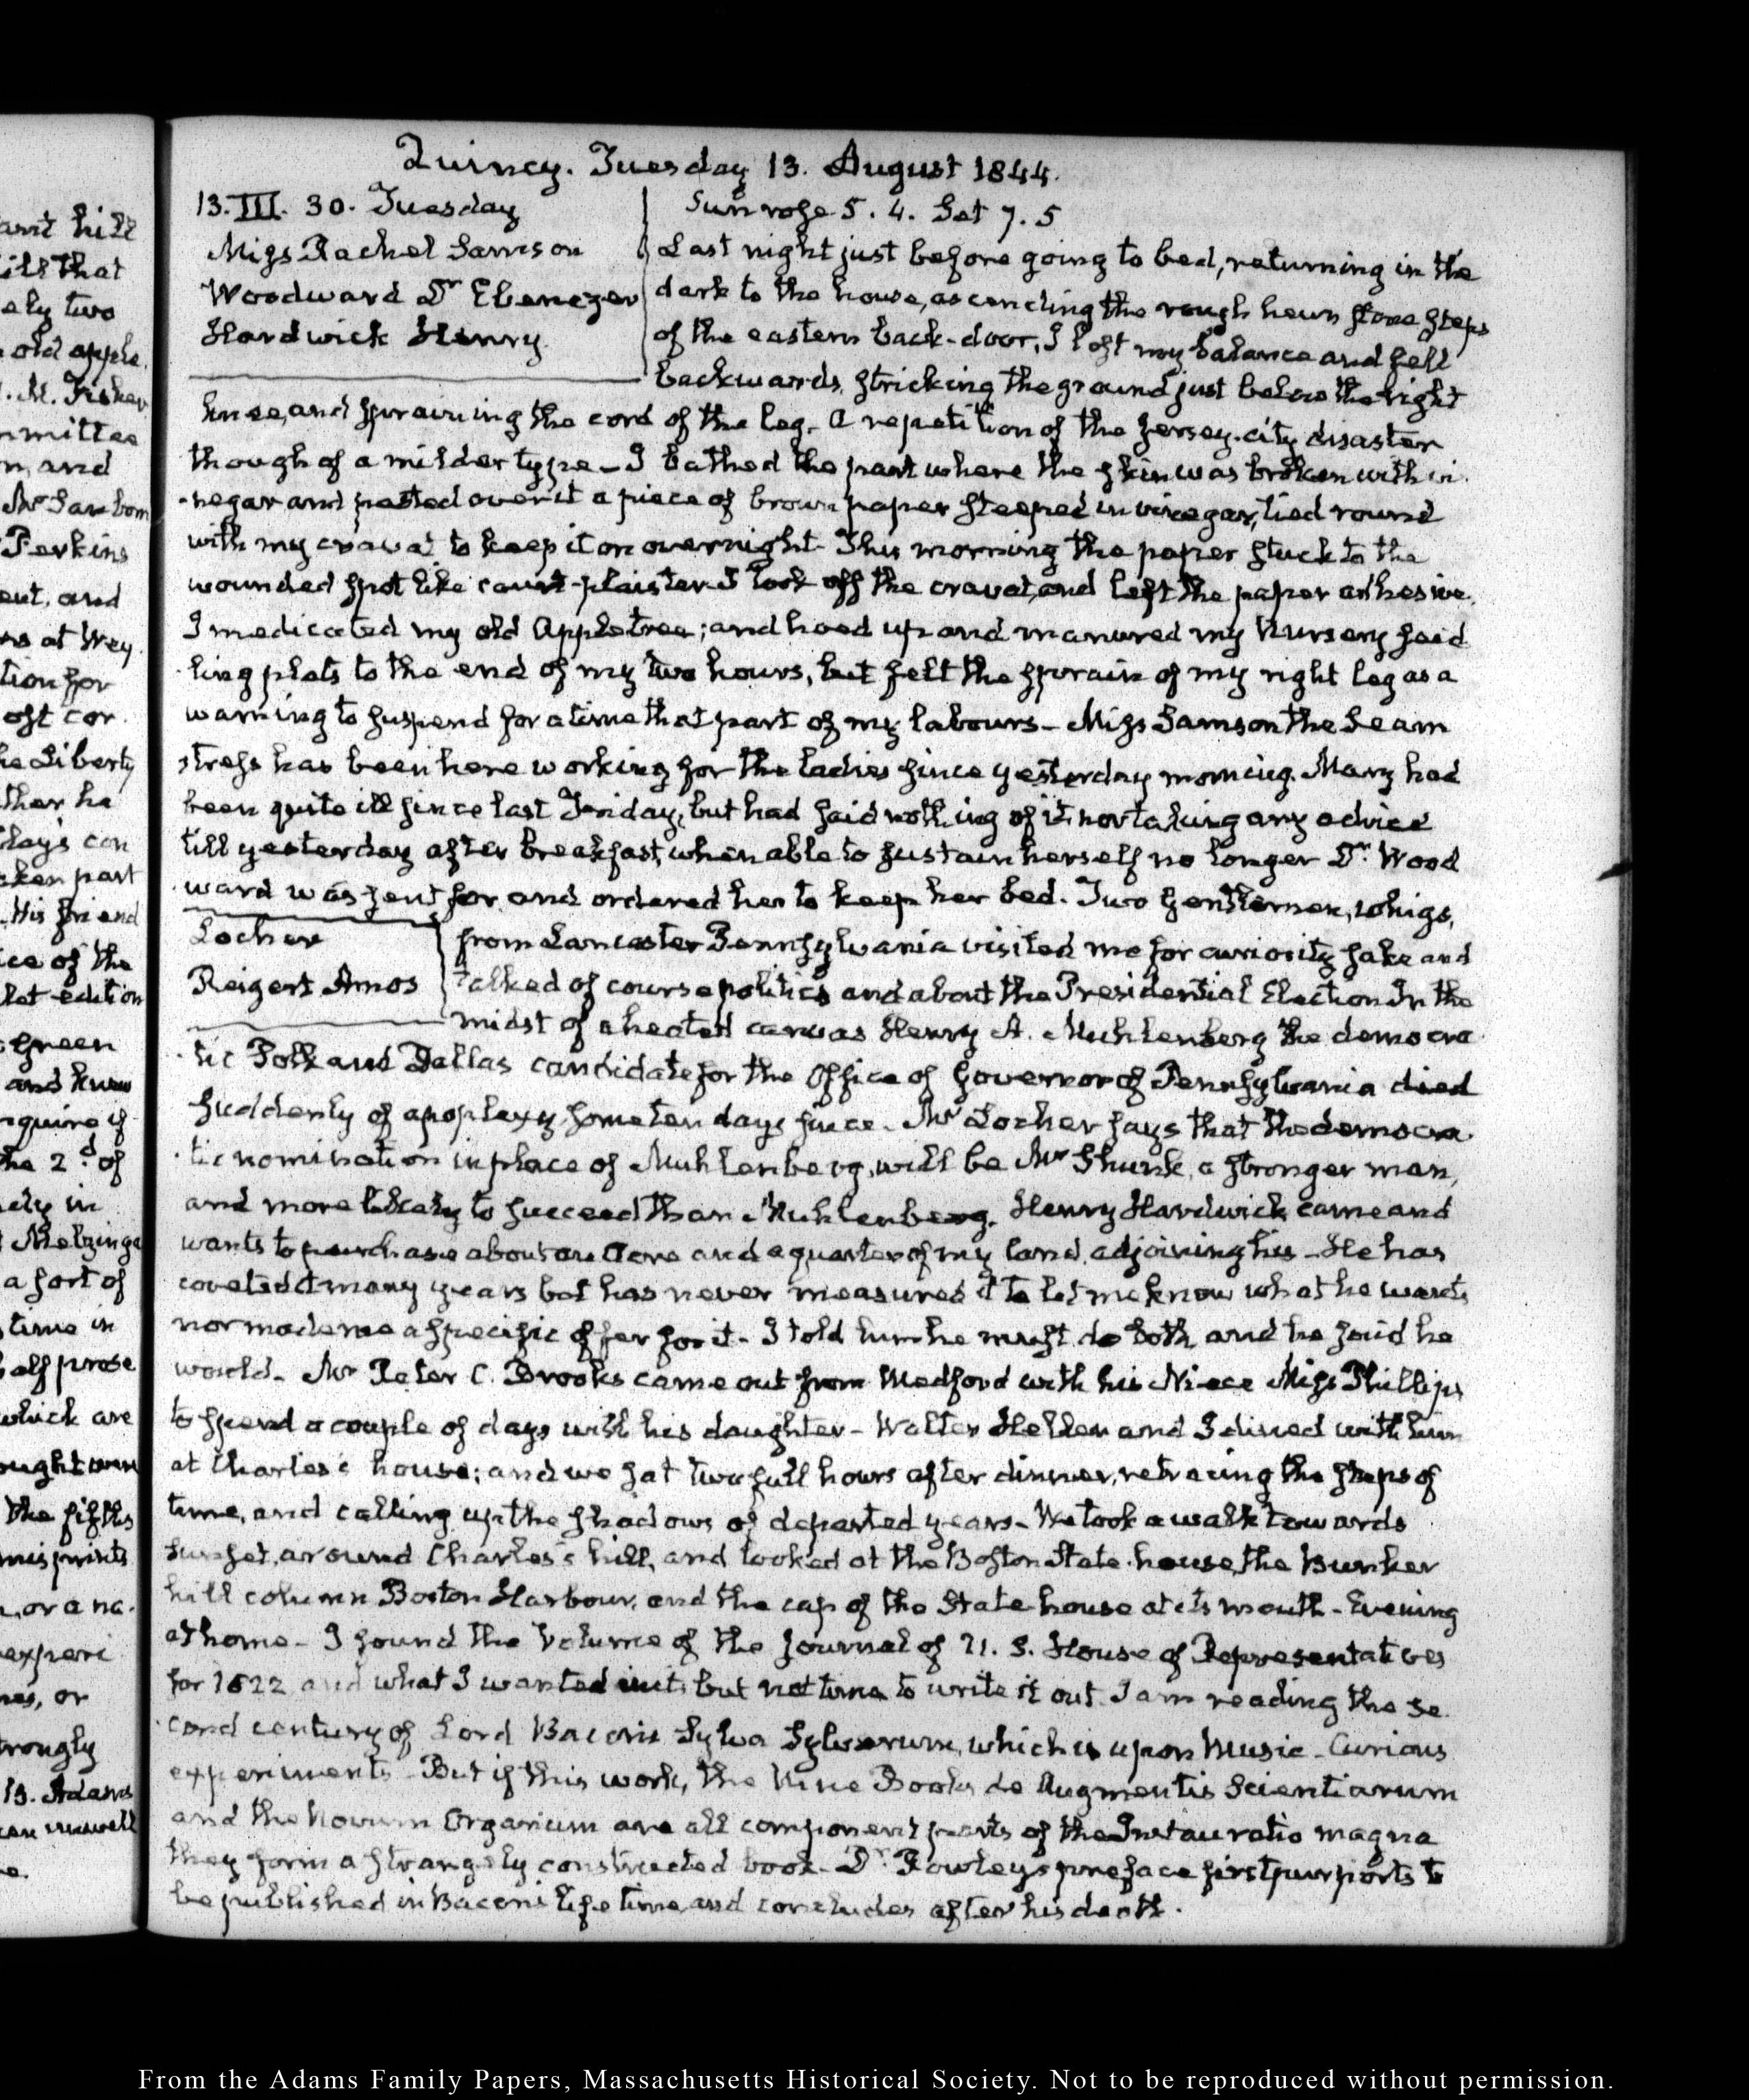 Quincy. Tuesday 13. August 1844.
13. III. 30. Tuesday
Miss Rachel Samson
Woodward Dr Ebenezer
Hardwick Henry
Sun rose 5. 4. Set 7. 5
Last night just before going to bed, returning in the
dark to the house, ascending the rough hewn stone steps
of the eastern back-door, I lost my balance and fell
backwards, stricking the ground just below the right
knee, and spraining the cord of the leg. A repetition of the Jersey-city disaster
though of a milder type – I bathed the part where the skin was broken with vi-
-negar and pasted over it a piece of brown paper steeped in vinegar, tied round
with my cravat to keep it on overnight. This morning the paper stuck to the
wounded spot like court-plaister I took off the cravat, and left the paper adhesive.
I medicated my old Apple tree; and hoed up and manured my Nursery seed
ling plats to the end of my two hours, but felt the sprain of my right leg as a
warning to suspend for a time that part of my labours – Miss Samson the Seam
stress has been here working for the ladies since yesterday morning. Mary had
been quite ill since last Friday, but had said nothing of it, nor taking any advice
till yesterday after breakfast, when able to sustain herself no longer Dr. Wood
ward was sent for and ordered her to keep her bed. Two Gentlemen, whigs,
Locher
Reigert Amos
from Lancaster Pennsylvania visited me for curiosity sake and
talked of course politics and about the Presidential Election In the
midst of a heated canvas Henry A. Muhlenberg the democra-
-tic Polk and Dallas candidate for the Office of Governor of Pennsylvania died
suddenly of apoplexy some ten days since. Mr Locher says that the democra-
-tic nomination in place of Muhlenberg, will be Mr Shunk, a stronger man,
and more likely to succeed than Muhlenberg. Henry Hardwick came and
wants to purchase about an Acre and a quarter of my land, adjoining his – He has
coveted it many years but has never measured it to let me know what he wants
nor made me a specific offer for it – I told him he must do both, and he said he
would – Mr Peter C. Brooks came out from Medford with his Niece Miss Phillips
to spend a couple of days with his daughter – Walter Hellen and I dined with him
at Charles's house; and we sat two full hours after dinner, retracing the steps of
time, and calling up the shadows of departed years – We took a walk towards
sunset, around Charles's hill, and looked at the Boston State-house, the Bunker
hill column Boston Harbour, and the cap of the State house at its mouth – Evening
at home – I found the Volume of the Journal of U. S. House of Representatives
for 1822 and what I wanted in it, but not time to write it out. I am reading the se-
cond century of Lord Bacon's Sylva Sylvarum, which is upon Music – Curious
experiments – But if this work, the Nine Books de Augmentis Scientiarum
and the Novum Organum are all component parts of the Instauratio magna
they form a strangely constructed book – Dr. Rawley's preface first purports to
be published in Bacon's life time, and concludes after his death.
From the Adams Family Papers, Massachusetts Historical Society. Not to be reproduced without permission.